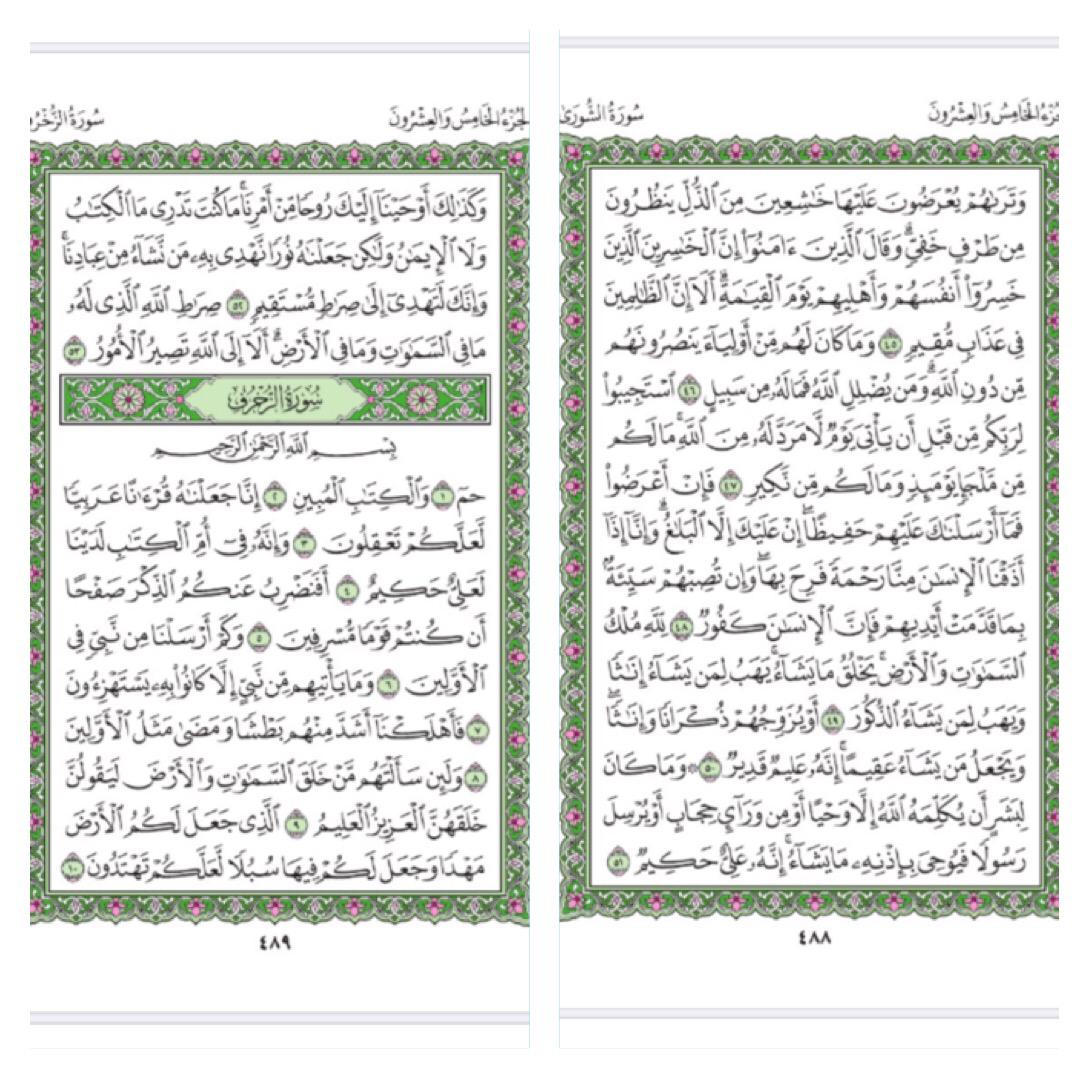 جُزْءُ الْخَامِسُ وَالْعِشْرُونَ
سُورَةُ الشُّورَىٰ
وَتَرَىٰهُمْ يُعْرَضُونَ عَلَيْهَا خَٰشِعِينَ مِنَ ٱلذُّلِّ يَنظُرُونَ
مِن طَرْفٍ خَفِيٍّۗ وَقَالَ ٱلَّذِينَ ءَامَنُوٓا۟ إِنَّ ٱلْخَٰسِرِينَ ٱلَّذِينَ
خَسِرُوٓا۟ أَنفُسَهُمْ وَأَهْلِيهِمْ يَوْمَ ٱلْقِيَٰمَةِۗ أَلَآ إِنَّ ٱلظَّٰلِمِينَ
فِى عَذَابٍ مُّقِيمٍ ٤٥ وَمَا كَانَ لَهُم مِّنْ أَوْلِيَآءَ يَنصُرُونَهُم
مِّن دُونِ ٱللَّهِۗ وَمَن يُضْلِلِ ٱللَّهُ فَمَا لَهُۥ مِن سَبِيلٍ ٤٦ ٱسْتَجِيبُوا۟
لِرَبِّكُم مِّن قَبْلِ أَن يَأْتِىَ يَوْمٌ لَّا مَرَدَّ لَهُۥ مِنَ ٱللَّهِۚ مَا لَكُم
مِّن مَّلْجَإٍ يَوْمَئِذٍ وَمَا لَكُم مِّن نَّكِيرٍ ٤٧ فَإِنْ أَعْرَضُوا۟
فَمَآ أَرْسَلْنَٰكَ عَلَيْهِمْ حَفِيظًاۖ إِنْ عَلَيْكَ إِلَّا ٱلْبَلَٰغُۗ وَإِنَّآ إِذَآ
أَذَقْنَا ٱلْإِنسَٰنَ مِنَّا رَحْمَةً فَرِحَ بِهَاۖ وَإِن تُصِبْهُمْ سَيِّئَةٌۢ
بِمَا قَدَّمَتْ أَيْدِيهِمْ فَإِنَّ ٱلْإِنسَٰنَ كَفُورٌ ٤٨ لِّلَّهِ مُلْكُ
ٱلسَّمَٰوَٰتِ وَٱلْأَرْضِۚ يَخْلُقُ مَا يَشَآءُۚ يَهَبُ لِمَن يَشَآءُ إِنَٰثًا
وَيَهَبُ لِمَن يَشَآءُ ٱلذُّكُورَ ٤٩ أَوْ يُزَوِّجُهُمْ ذُكْرَانًا وَإِنَٰثًاۖ
وَيَجْعَلُ مَن يَشَآءُ عَقِيمًاۚ إِنَّهُۥ عَلِيمٌ قَدِيرٌ ٥٠ ۞ وَمَا كَانَ
لِبَشَرٍ أَن يُكَلِّمَهُ ٱللَّهُ إِلَّا وَحْيًا أَوْ مِن وَرَآئِ حِجَابٍ أَوْ يُرْسِلَ
رَسُولًا فَيُوحِىَ بِإِذْنِهِۦ مَا يَشَآءُۚ إِنَّهُۥ عَلِىٌّ حَكِيمٌ ٥١
٤٨٨
لْجُزْءُ الْخَامِسُ وَالْعِشْرُونَ
سُورَةُ الزُّخْرُفِ
وَكَذَٰلِكَ أَوْحَيْنَآ إِلَيْكَ رُوحًا مِّنْ أَمْرِنَاۚ مَا كُنتَ تَدْرِى مَا ٱلْكِتَٰبُ
وَلَا ٱلْإِيمَٰنُ وَلَٰكِن جَعَلْنَٰهُ نُورًا نَّهْدِى بِهِۦ مَن نَّشَآءُ مِنْ عِبَادِنَاۚ
وَإِنَّكَ لَتَهْدِىٓ إِلَىٰ صِرَٰطٍ مُّسْتَقِيمٍ ٥٢ صِرَٰطِ ٱللَّهِ ٱلَّذِى لَهُۥ
مَا فِى ٱلسَّمَٰوَٰتِ وَمَا فِى ٱلْأَرْضِۗ أَلَآ إِلَى ٱللَّهِ تَصِيرُ ٱلْأُمُورُ ٥٣
سُورَةُ الزُّخْرُفِ
بِسْمِ ٱللَّهِ ٱلرَّحْمَٰنِ ٱلرَّحِيمِ
حمٓ ١ وَٱلْكِتَٰبِ ٱلْمُبِينِ ٢ إِنَّا جَعَلْنَٰهُ قُرْءَٰنًا عَرَبِيًّا
لَّعَلَّكُمْ تَعْقِلُونَ ٣ وَإِنَّهُۥ فِىٓ أُمِّ ٱلْكِتَٰبِ لَدَيْنَا
لَعَلِىٌّ حَكِيمٌ ٤ أَفَنَضْرِبُ عَنكُمُ ٱلذِّكْرَ صَفْحًا
أَن كُنتُمْ قَوْمًا مُّسْرِفِينَ ٥ وَكَمْ أَرْسَلْنَا مِن نَّبِىٍّ فِى
ٱلْأَوَّلِينَ ٦ وَمَا يَأْتِيهِم مِّن نَّبِىٍّ إِلَّا كَانُوا۟ بِهِۦ يَسْتَهْزِءُونَ
٧ فَأَهْلَكْنَآ أَشَدَّ مِنْهُم بَطْشًا وَمَضَىٰ مَثَلُ ٱلْأَوَّلِينَ
٨ وَلَئِن سَأَلْتَهُم مَّنْ خَلَقَ ٱلسَّمَٰوَٰتِ وَٱلْأَرْضَ لَيَقُولُنَّ
خَلَقَهُنَّ ٱلْعَزِيزُ ٱلْعَلِيمُ ٩ ٱلَّذِى جَعَلَ لَكُمُ ٱلْأَرْضَ
مَهْدًا وَجَعَلَ لَكُمْ فِيهَا سُبُلًا لَّعَلَّكُمْ تَهْتَدُونَ ١٠
٤٨٩